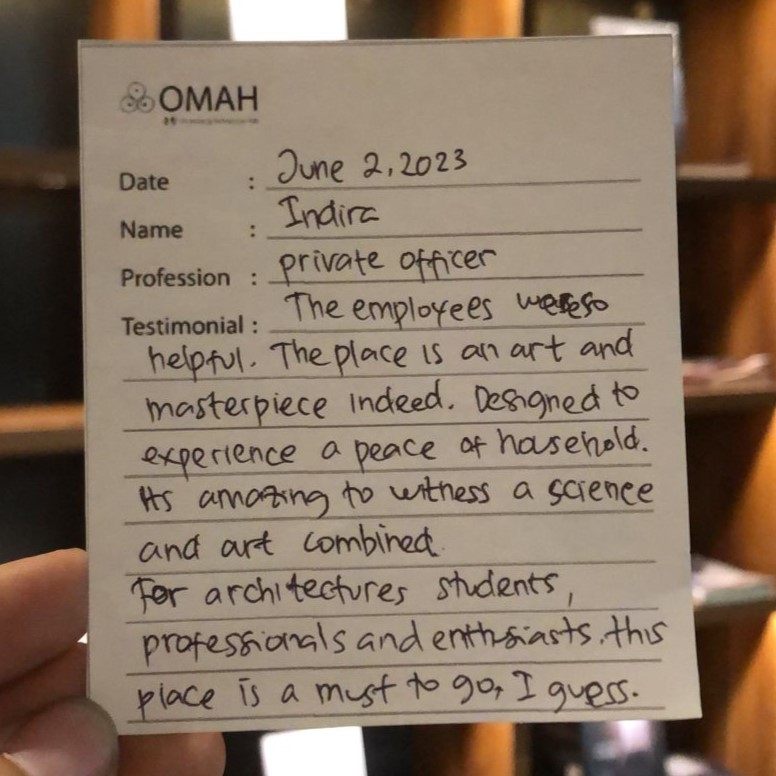 OMAH
Date : June 2, 2023
Name : Indira
Profession : private officer
Testimonial : The employees were so
helpful. The place is an art and
masterpiece indeed. Designed to
experience a peace of household.
Its amazing to witness a science
and art combined.
For architectures students,
professionals and enthusiasts, this
place is a must to go, I guess.